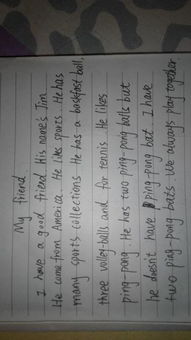 My friend
I have a good friend His name's Jim
He come from America. He likes sports. He has
many sports collections He has a basketball,
three volley-balls and for tennis. He likes
ping-pong. He has two ping-pong balls but
he doesn't have ping-pong bat. I have
two ping-pong bats. We always play together